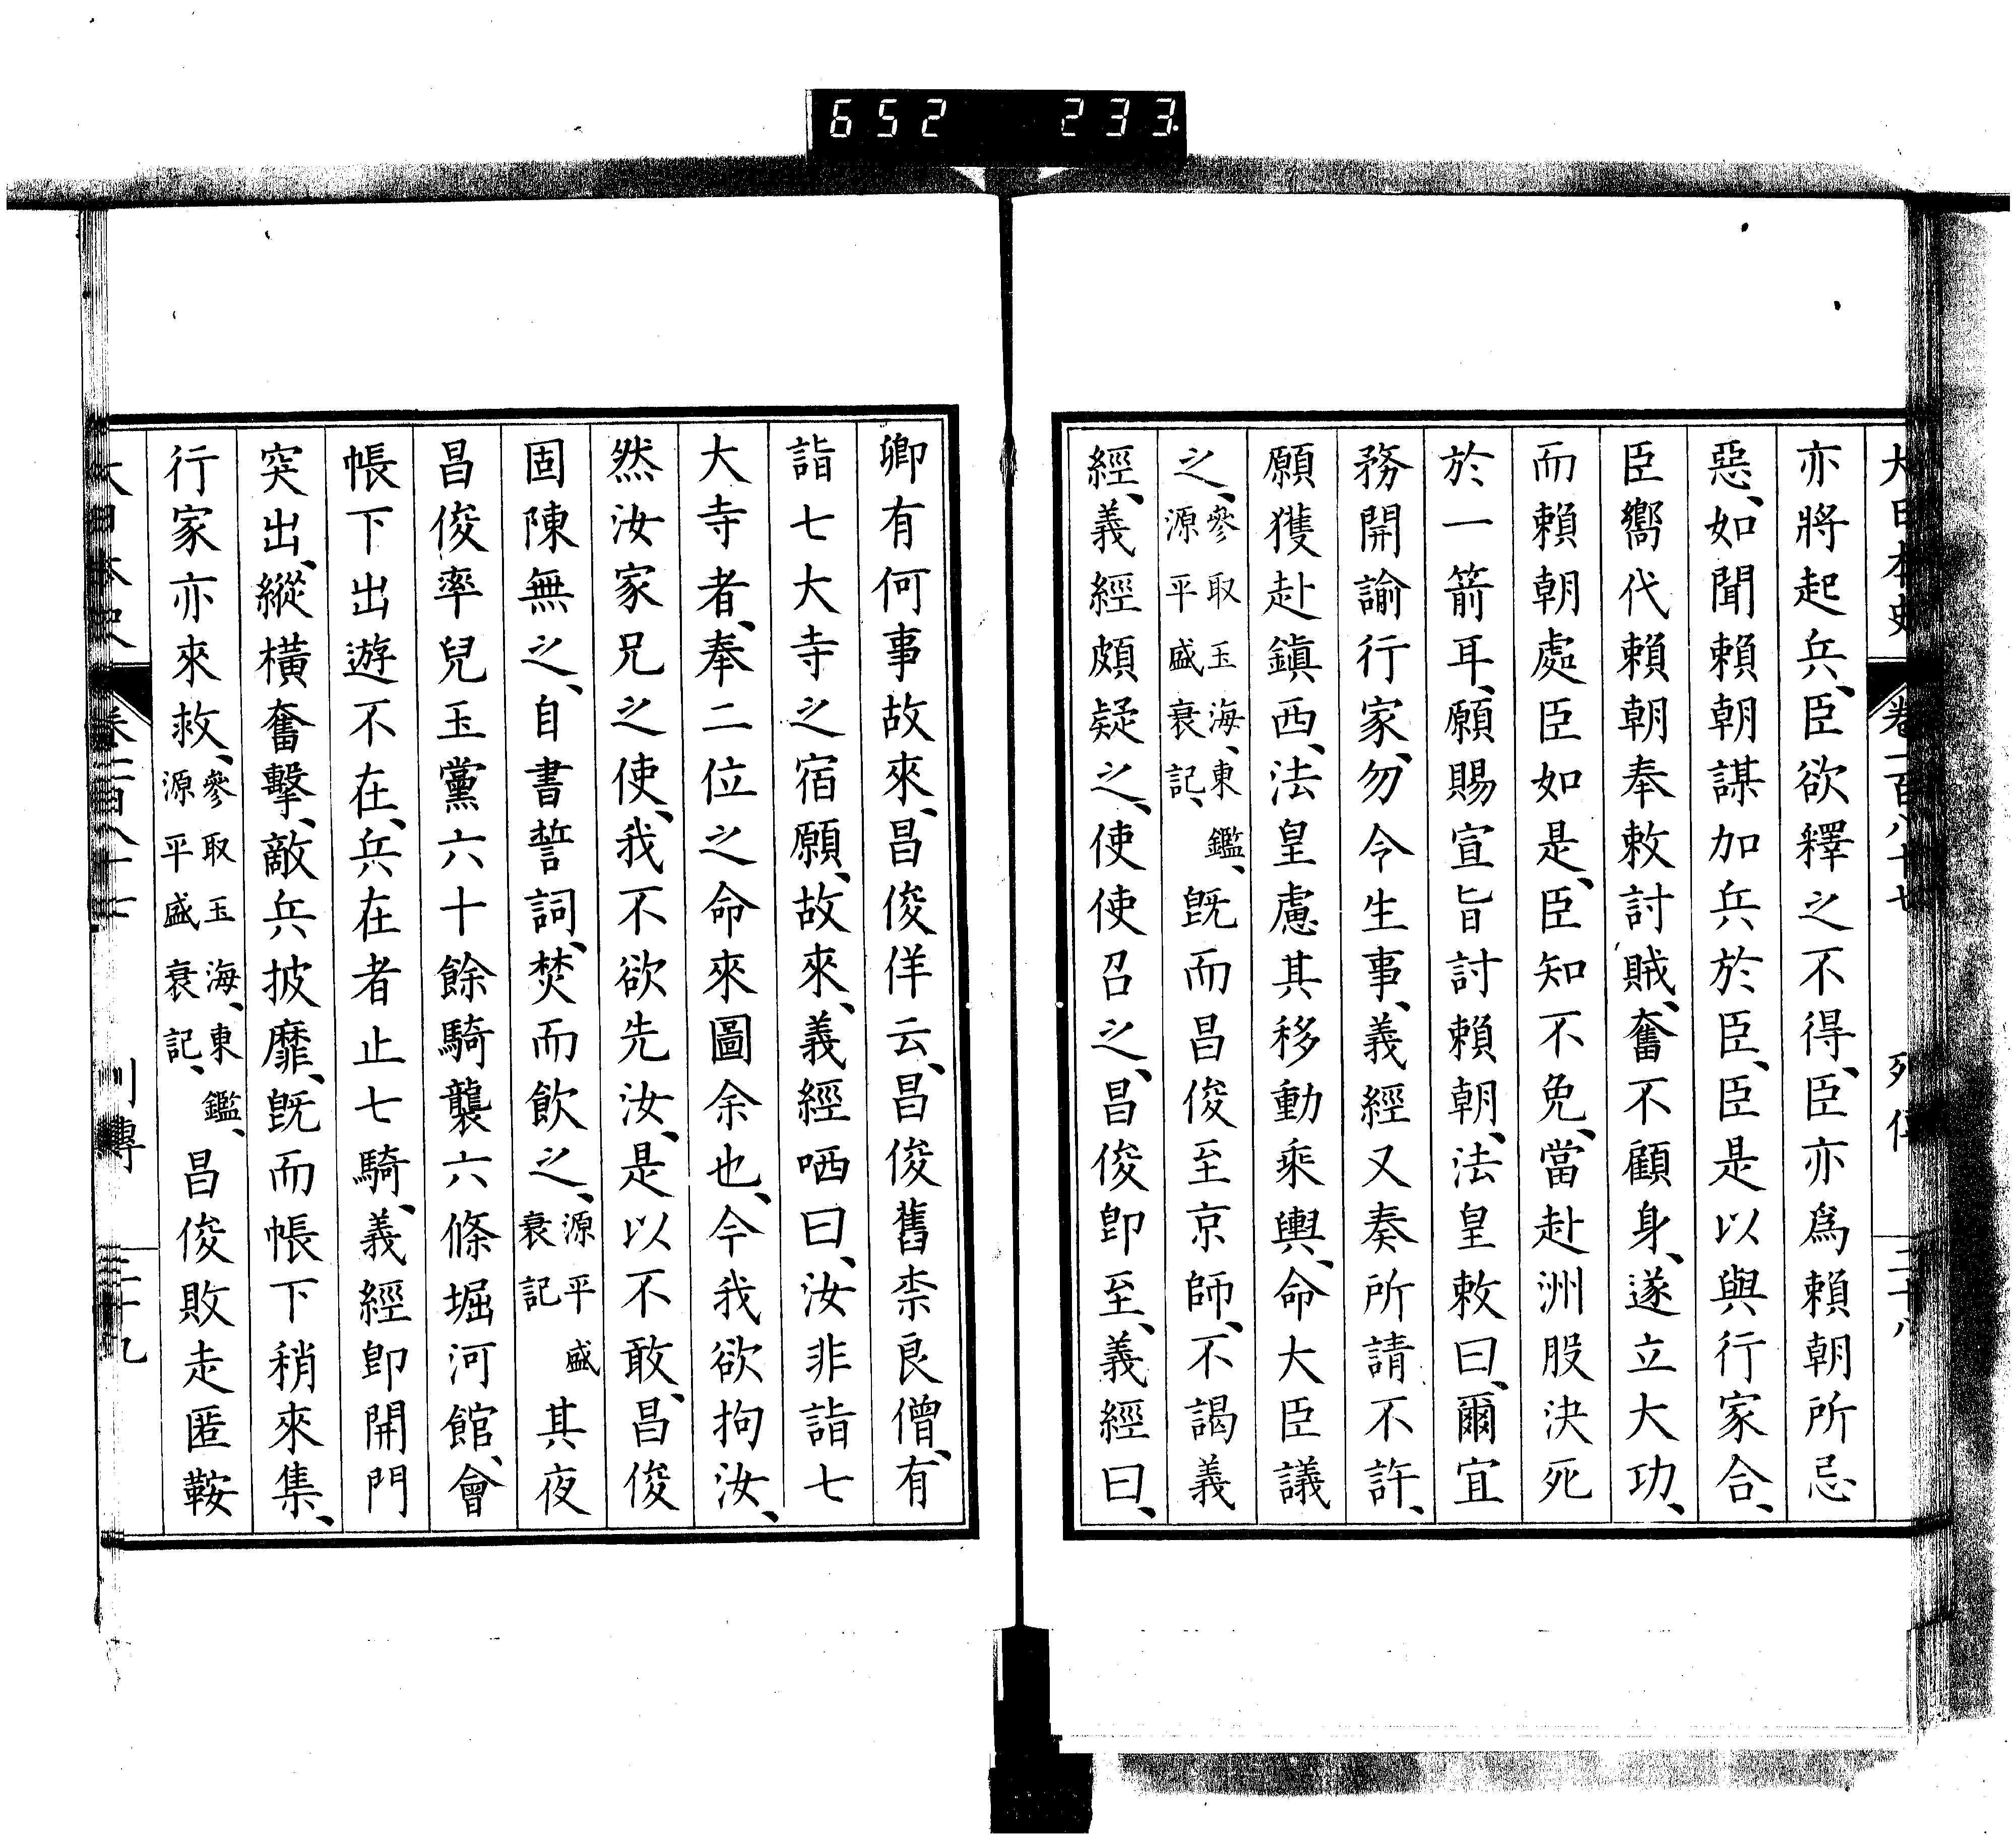 652 233
大日本史 卷一百八十七 列傳 三十八
亦將起兵、臣欲釋之不得、臣亦爲賴朝所忌
惡、如聞賴朝謀加兵於臣、臣是以與行家合、
臣嚮代賴朝奉敕討賊、奮不顧身、遂立大功、
而賴朝處臣如是、臣知不免、當赴洲股決死
於一箭耳、願賜宣旨討賴朝、法皇敕曰、爾宜
務開諭行家、勿令生事、義經又奏所請不許、
願獲赴鎭西、法皇慮其移動乘輿、命大臣議
之、參取玉海、東鑑、源平盛衰記、既而昌俊至京師、不謁義
經、義經頗疑之、使使召之、昌俊卽至、義經曰、
卿有何事故來、昌俊佯云、昌俊舊柰良僧、有
詣七大寺之宿願、故來、義經哂曰、汝非詣七
大寺者、奉二位之命來圖余也、今我欲拘汝、
然汝家兄之使、我不欲先汝、是以不敢、昌俊
固陳無之、自書誓詞、焚而飮之、源平盛衰記 其夜
昌俊率兒玉黨六十餘騎襲六條堀河館、會
帳下出遊不在、兵在者止七騎、義經卽開門
突出、縱橫奮擊、敵兵披靡、既而帳下稍來集、
行家亦來救、參取玉海、東鑑、源平盛衰記、昌俊敗走匿鞍
大日本史 卷一百八十七 列傳 三十九